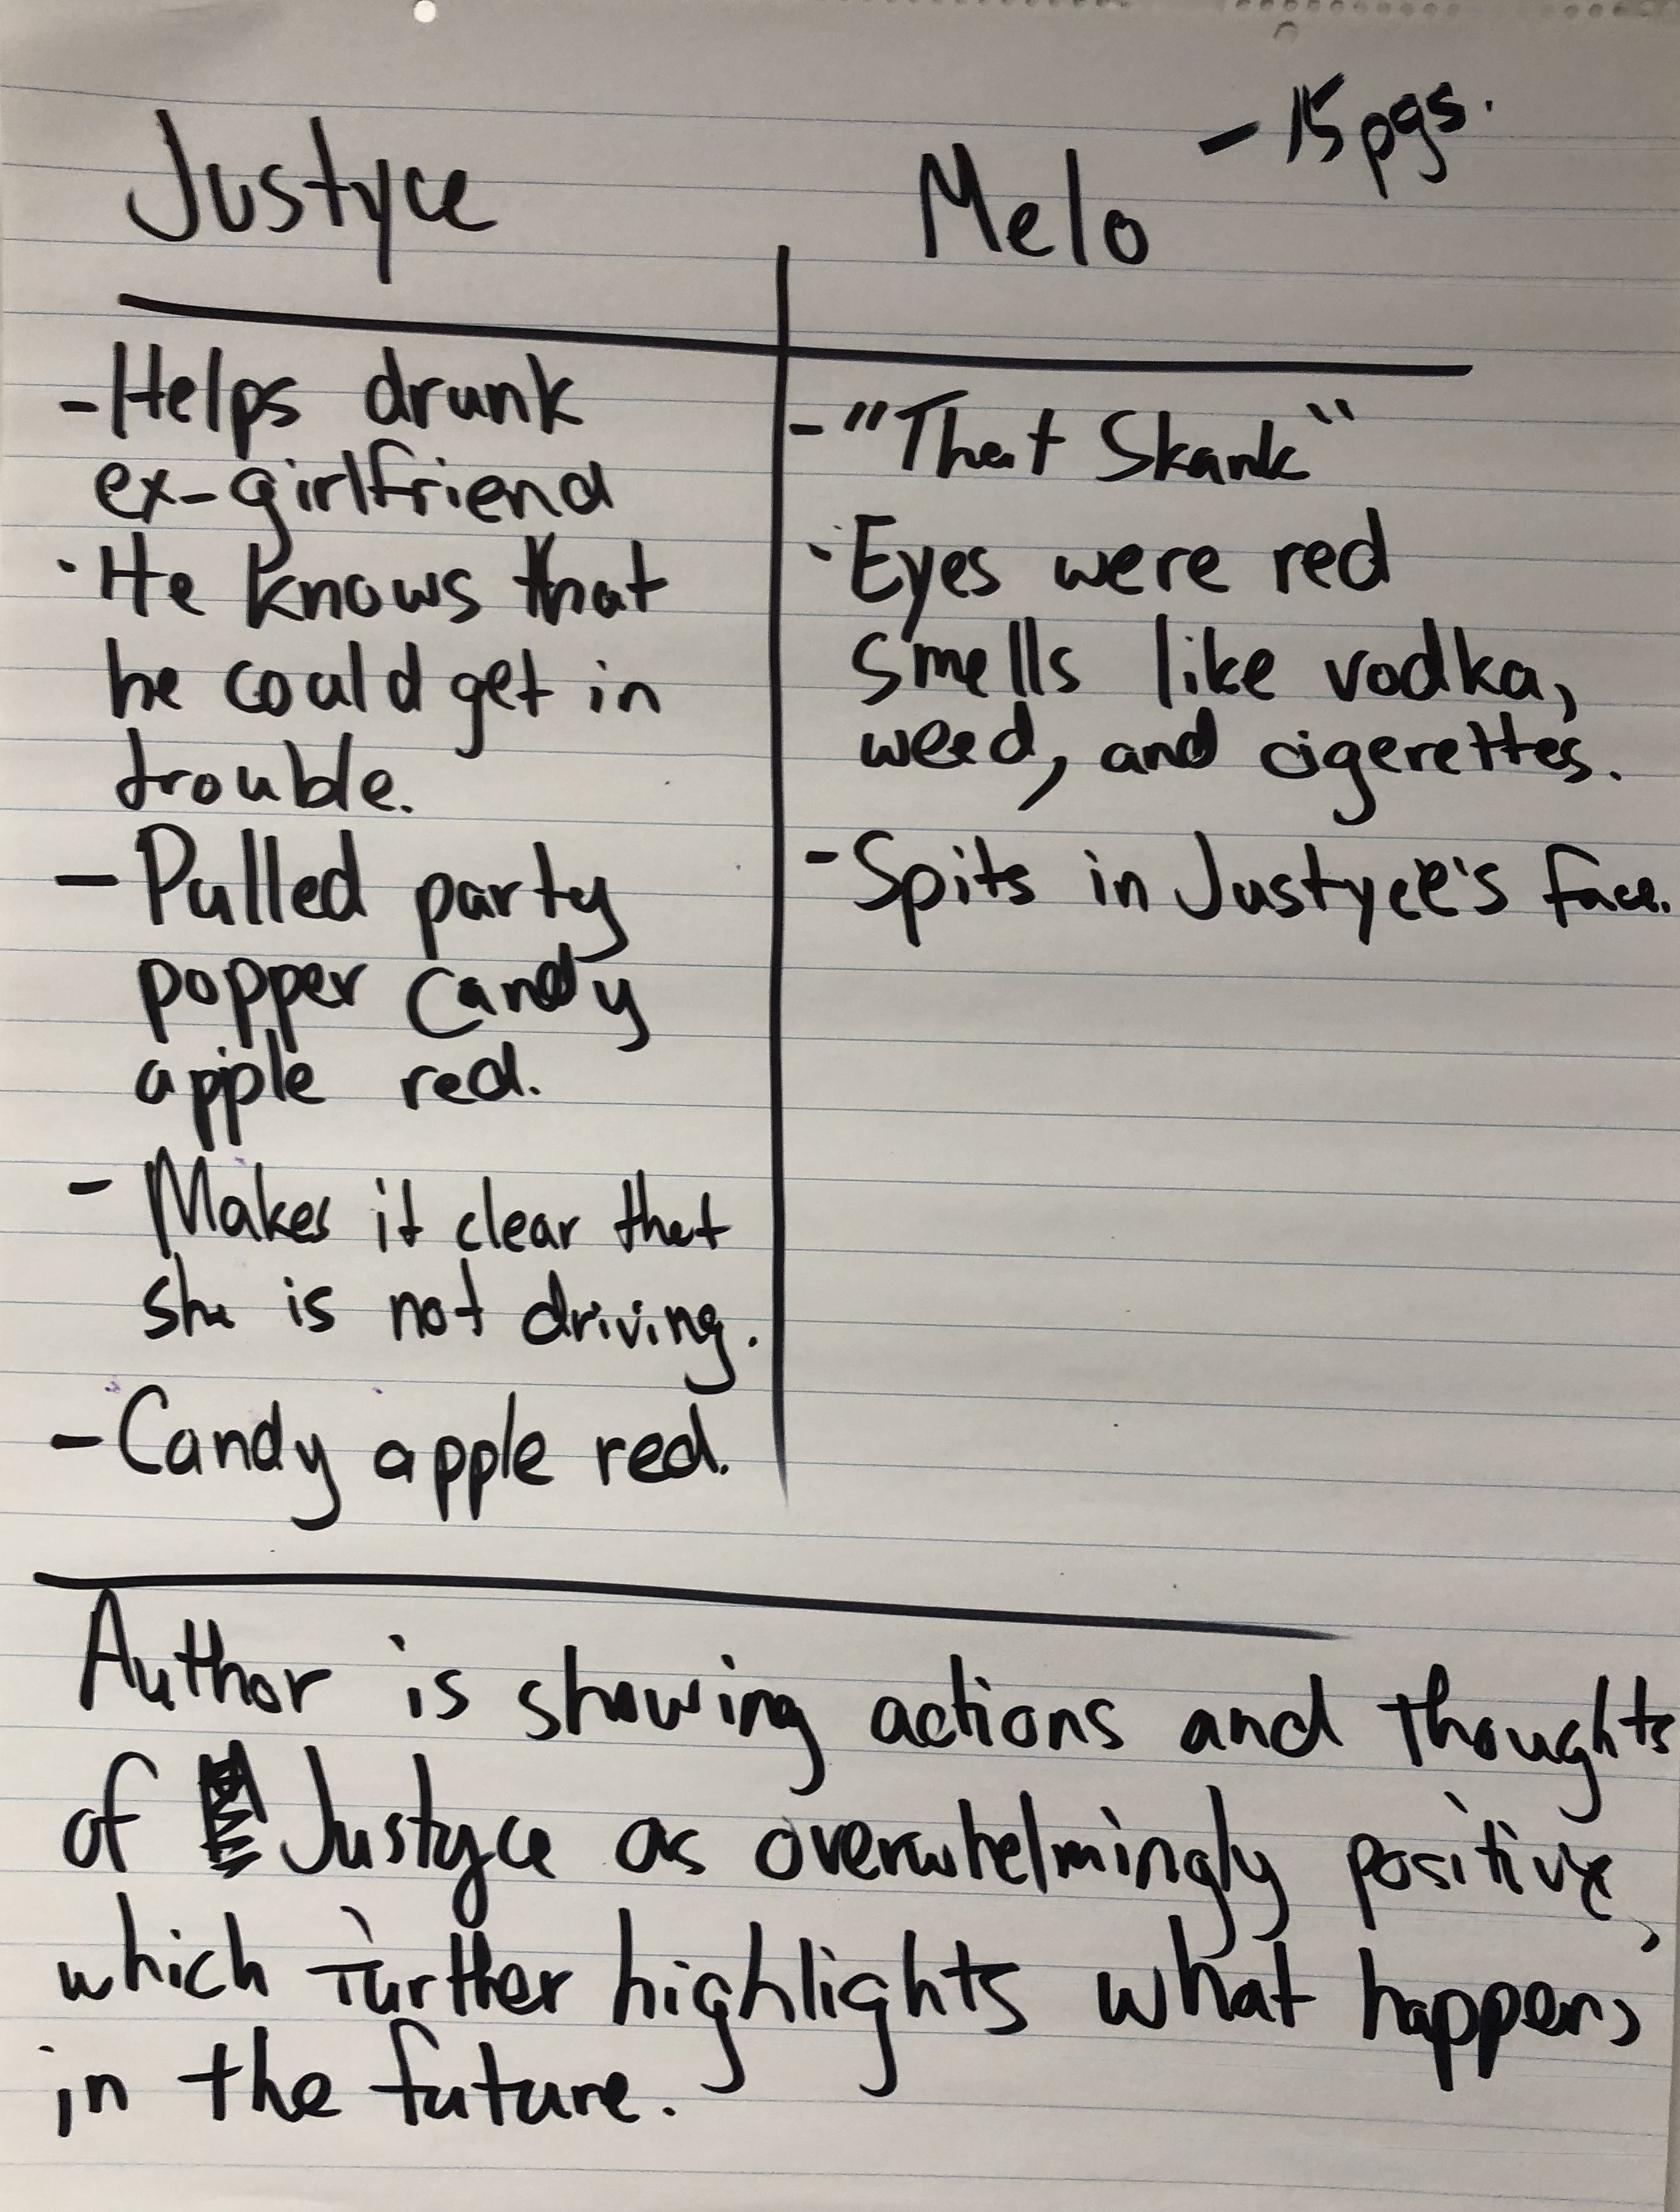 Justyce
Melo - 15 pgs.
- Helps drunk
ex-girlfriend
· He knows that
he could get in
trouble.
- Pulled party
popper Candy
apple red.
- Makes it clear that
she is not driving.
- Candy apple red.
- "That Skank"
· Eyes were red
smells like vodka,
weed, and cigerettes.
- Spits in Justyce's face.
Author is showing actions and thoughts
of Justyce as overwhelmingly positive,
which further highlights what happens
in the future.